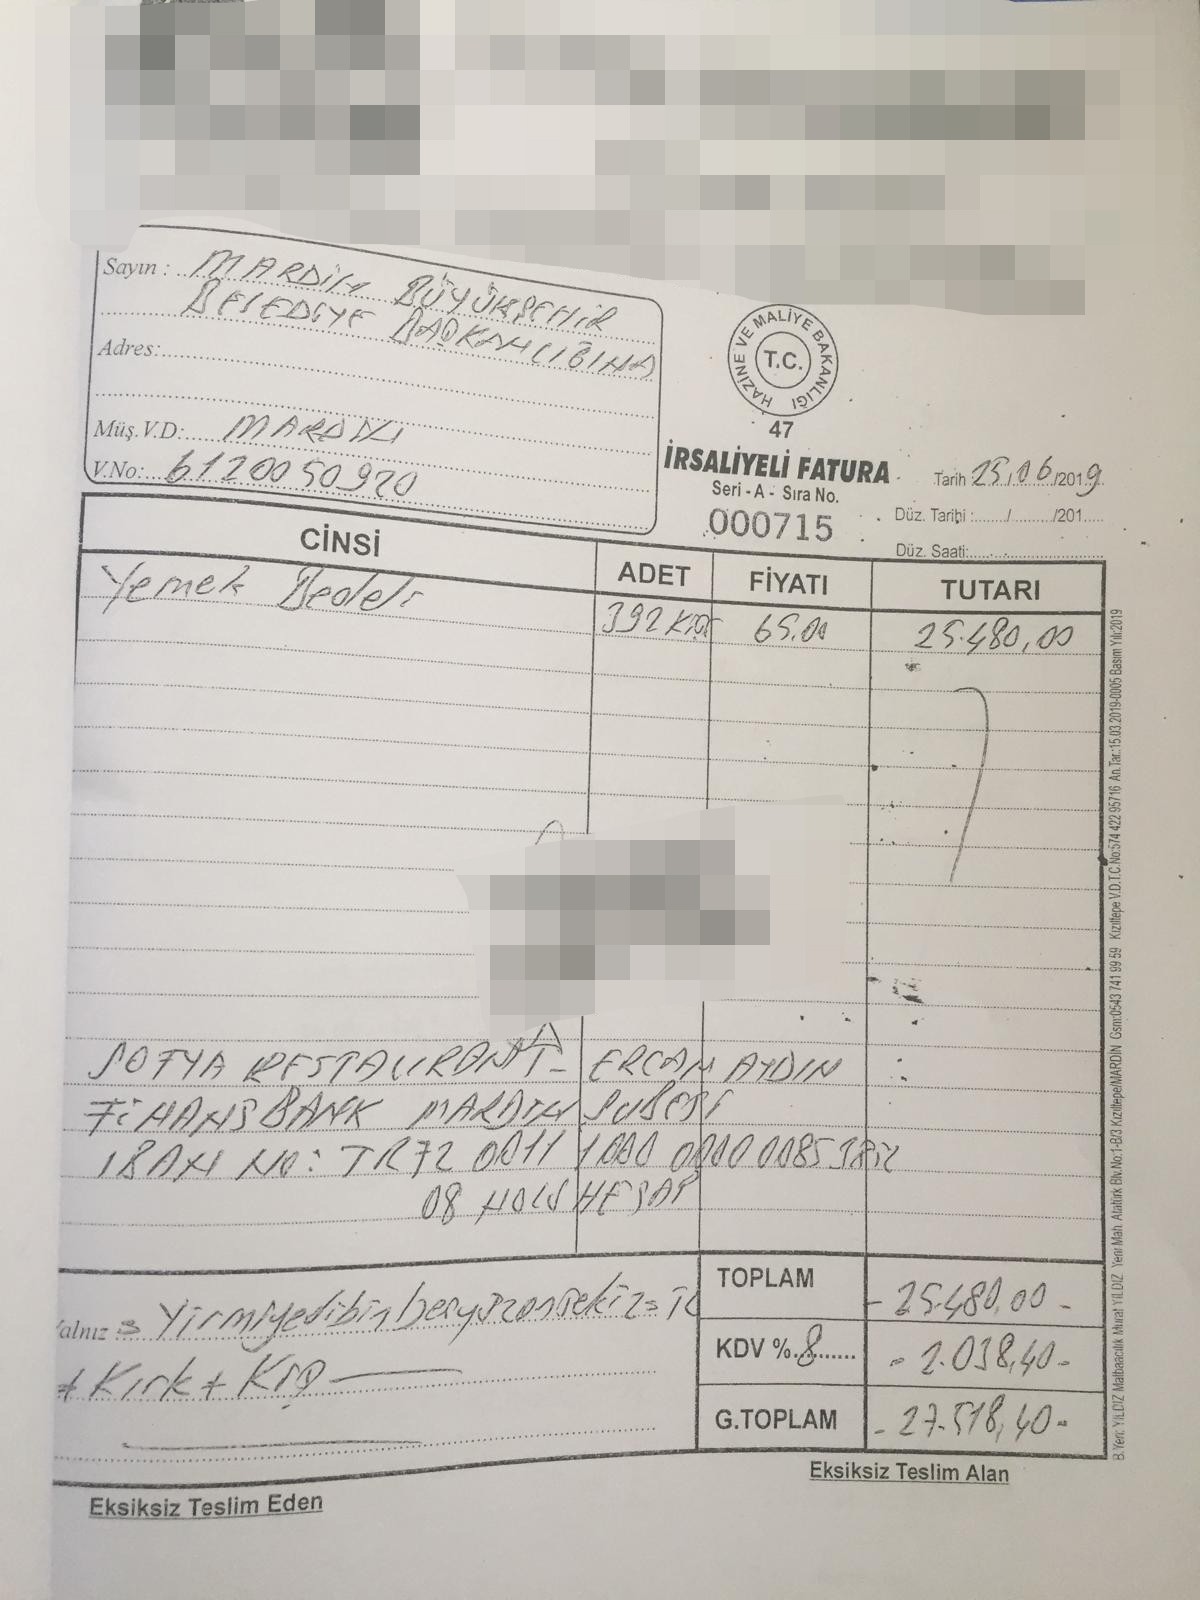 Sayın : MARDİN BÜYÜKŞEHİR
BELEDİYE BAŞKANLIĞINA
Adres:
Müş.V.D: MARDİN
V.No: 6120050920
HAZİNE VE MALİYE BAKANLIĞI
T.C.
47
İRSALİYELİ FATURA
Seri - A - Sıra No.
000715
Tarih 25/06/2019
Düz. Tarihi :....../......../201....
Düz. Saati:
CİNSİ ADET FİYATI TUTARI
Yemek Bedeli 392 Kişi 65.00 25.480,00
SOFYA RESTAURANT - ERCAN AYDIN
FİNANSBANK MARDİN ŞUBESİ
IBAN NO: TR72 0011 1000 0000 0085 38
08 NOLU HESAP
Yalnız = Yirmiyedibinbeşyüzonsekiz = TL
+ Kırk + Krş
TOPLAM - 25.480,00 -
KDV %.8...... - 2.038,40 -
G.TOPLAM - 27.518,40 -
Eksiksiz Teslim Eden
Eksiksiz Teslim Alan
B.Yeri: YILDIZ Matbaacılık Murat YILDIZ Yeni Mah. Atatürk Blv.No:1-B/3 Kızıltepe/MARDİN Gsm:0543 741 99 59 Kızıltepe V.D.T.C.No:574 422 95716 An.Tar.:15.03.2019-0005 Basım Yılı:2019